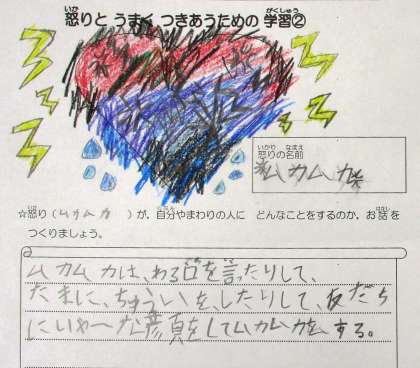 怒りと うまく つきあうための 学習②
怒りの名前
ムカムカ
☆怒り(ムカムカ)が、自分やまわりの人に どんなことをするのか、お話を
つくりましょう。
ムカムカは、わる口を言ったりして、
たまに、ちゅういを、したりして、友だち
にいや〜な顔をしてムカムカをする。